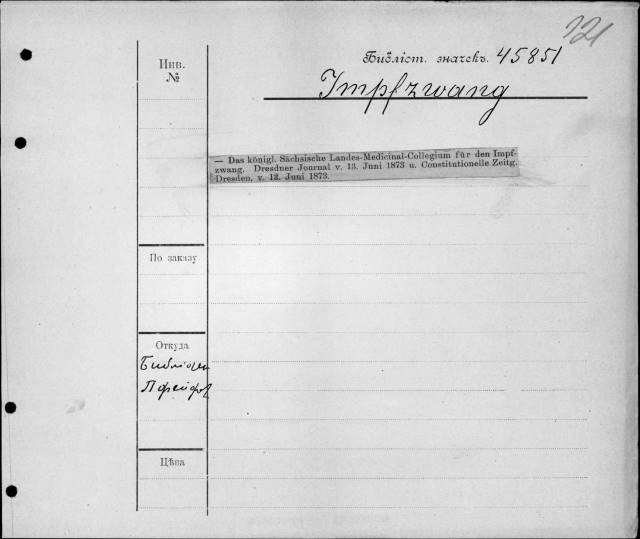 121
Инв. №
Библіот. значекъ. 45851
Impfzwang
— Das königl. Sächsische Landes-Medicinal-Collegium für den Impf-
zwang. Dresdner Journal v. 13. Juni 1873 u. Constitutionelle Zeitg.
Dresden, v. 12. Juni 1873.
По заказу
Откуда
Цѣна